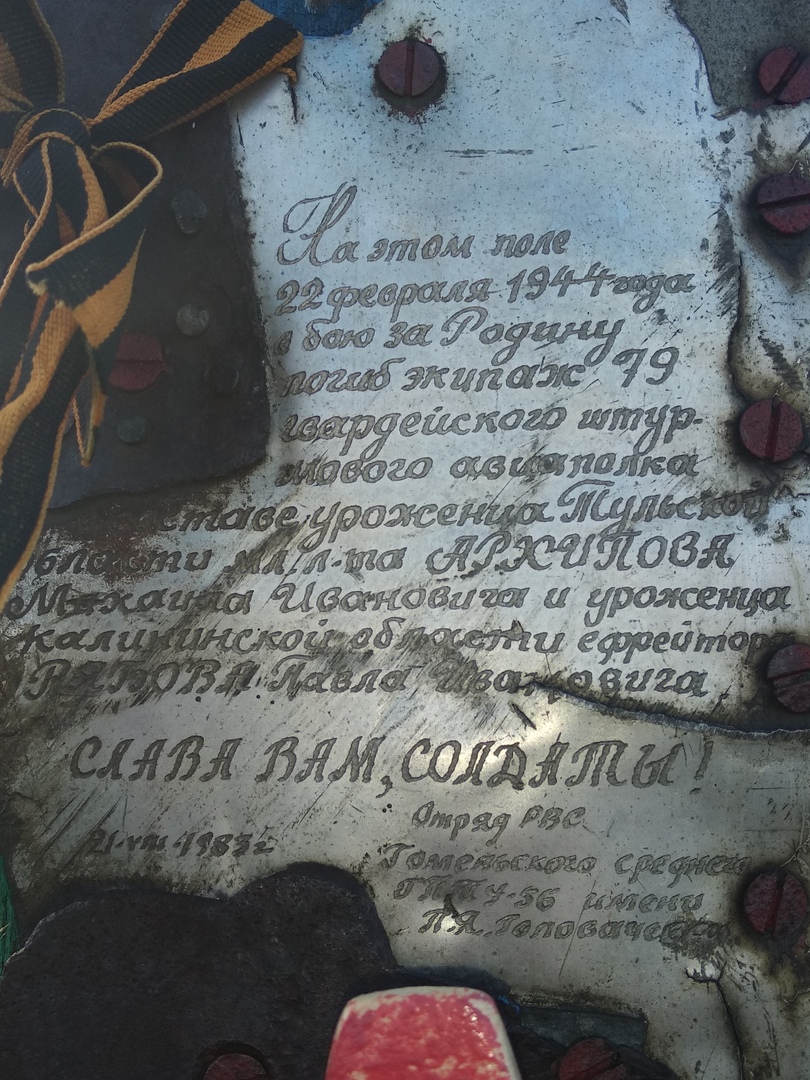 На этом поле
22 февраля 1944 года
в бою за Родину
погиб экипаж 79
гвардейского штур-
мового авиаполка
составе уроженца Тульской
области мл. л-та АРХИПОВА
Михаила Ивановича и уроженца
Калининской области ефрейтора
Павла Ивановича
СЛАВА ВАМ, СОЛДАТЫ!
21.VIII.1983г
Отряд РВС
Гомельского среднего
ГПТУ-56 имени
П.Я. Головачева